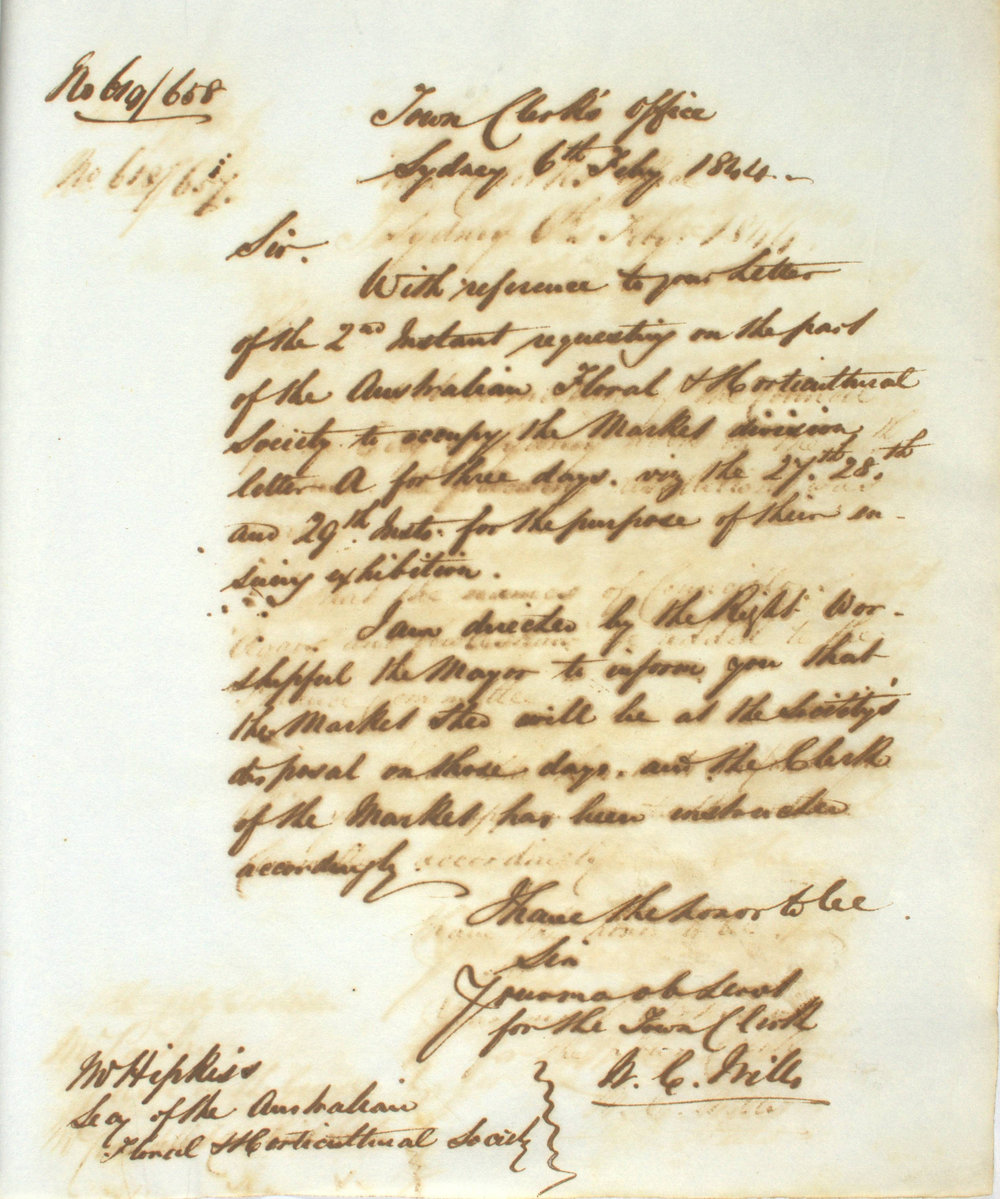 No 619/658
Town Clerk's Office
Sydney 6th Feby 1844.
Sir.
With reference to your Letter
of the 2nd Instant requesting on the part
of the Australian Floral & Horticultural
Society to occupy the Market division
letter A for three days. viz the 27th. 28th.
and 29th. Insts. for the purpose of their en-
suing exhibition.
I am directed by the Right Wor-
shipful the Mayor to inform you that
the Market shed will be at the Society's
disposal on those days. and the Clerk
of the Market has been instructed
accordingly
I have the honor to be
Sir
Your mo ob Servt
for the Town Clerk
W. C. Wills
Mr Hipkiss
Secy of the Australian
Floral & Horticultural Society